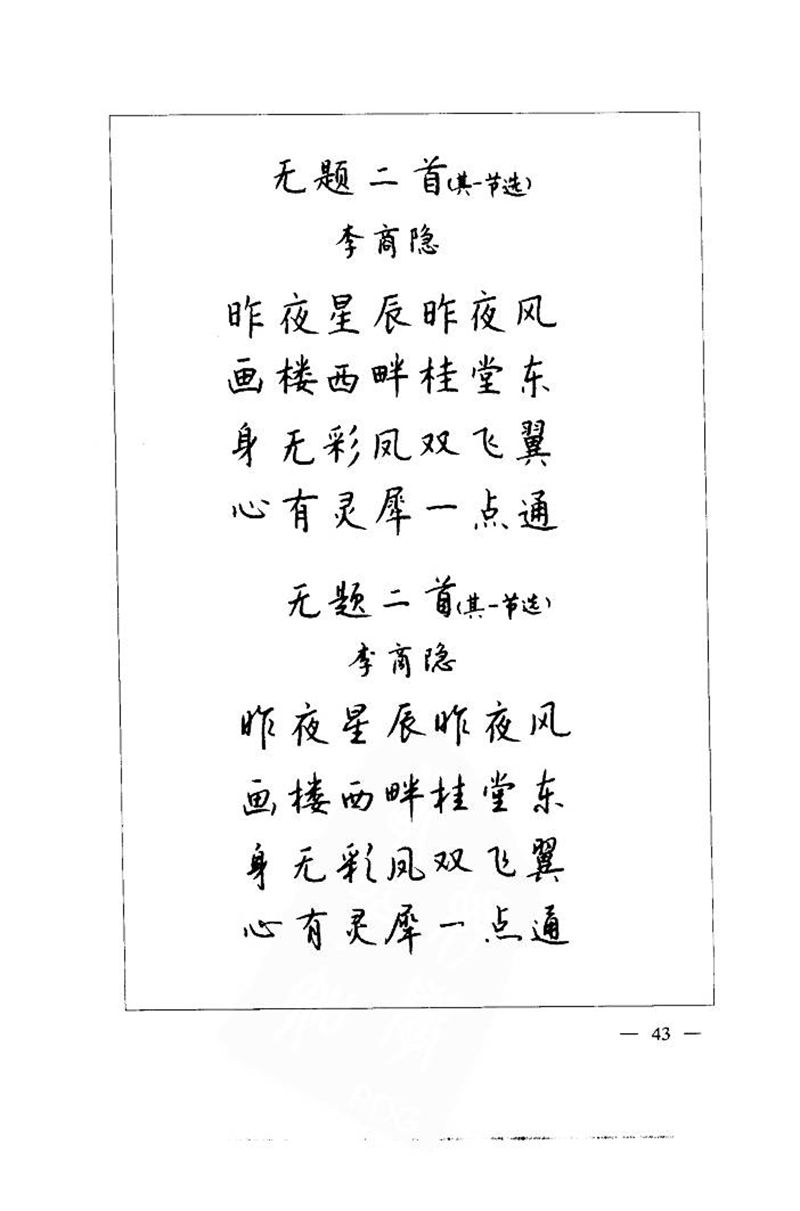 无题二首(其一节选)
李商隐
昨夜星辰昨夜风
画楼西畔桂堂东
身无彩凤双飞翼
心有灵犀一点通
无题二首(其一节选)
李商隐
昨夜星辰昨夜风
画楼西畔桂堂东
身无彩凤双飞翼
心有灵犀一点通
— 43 —